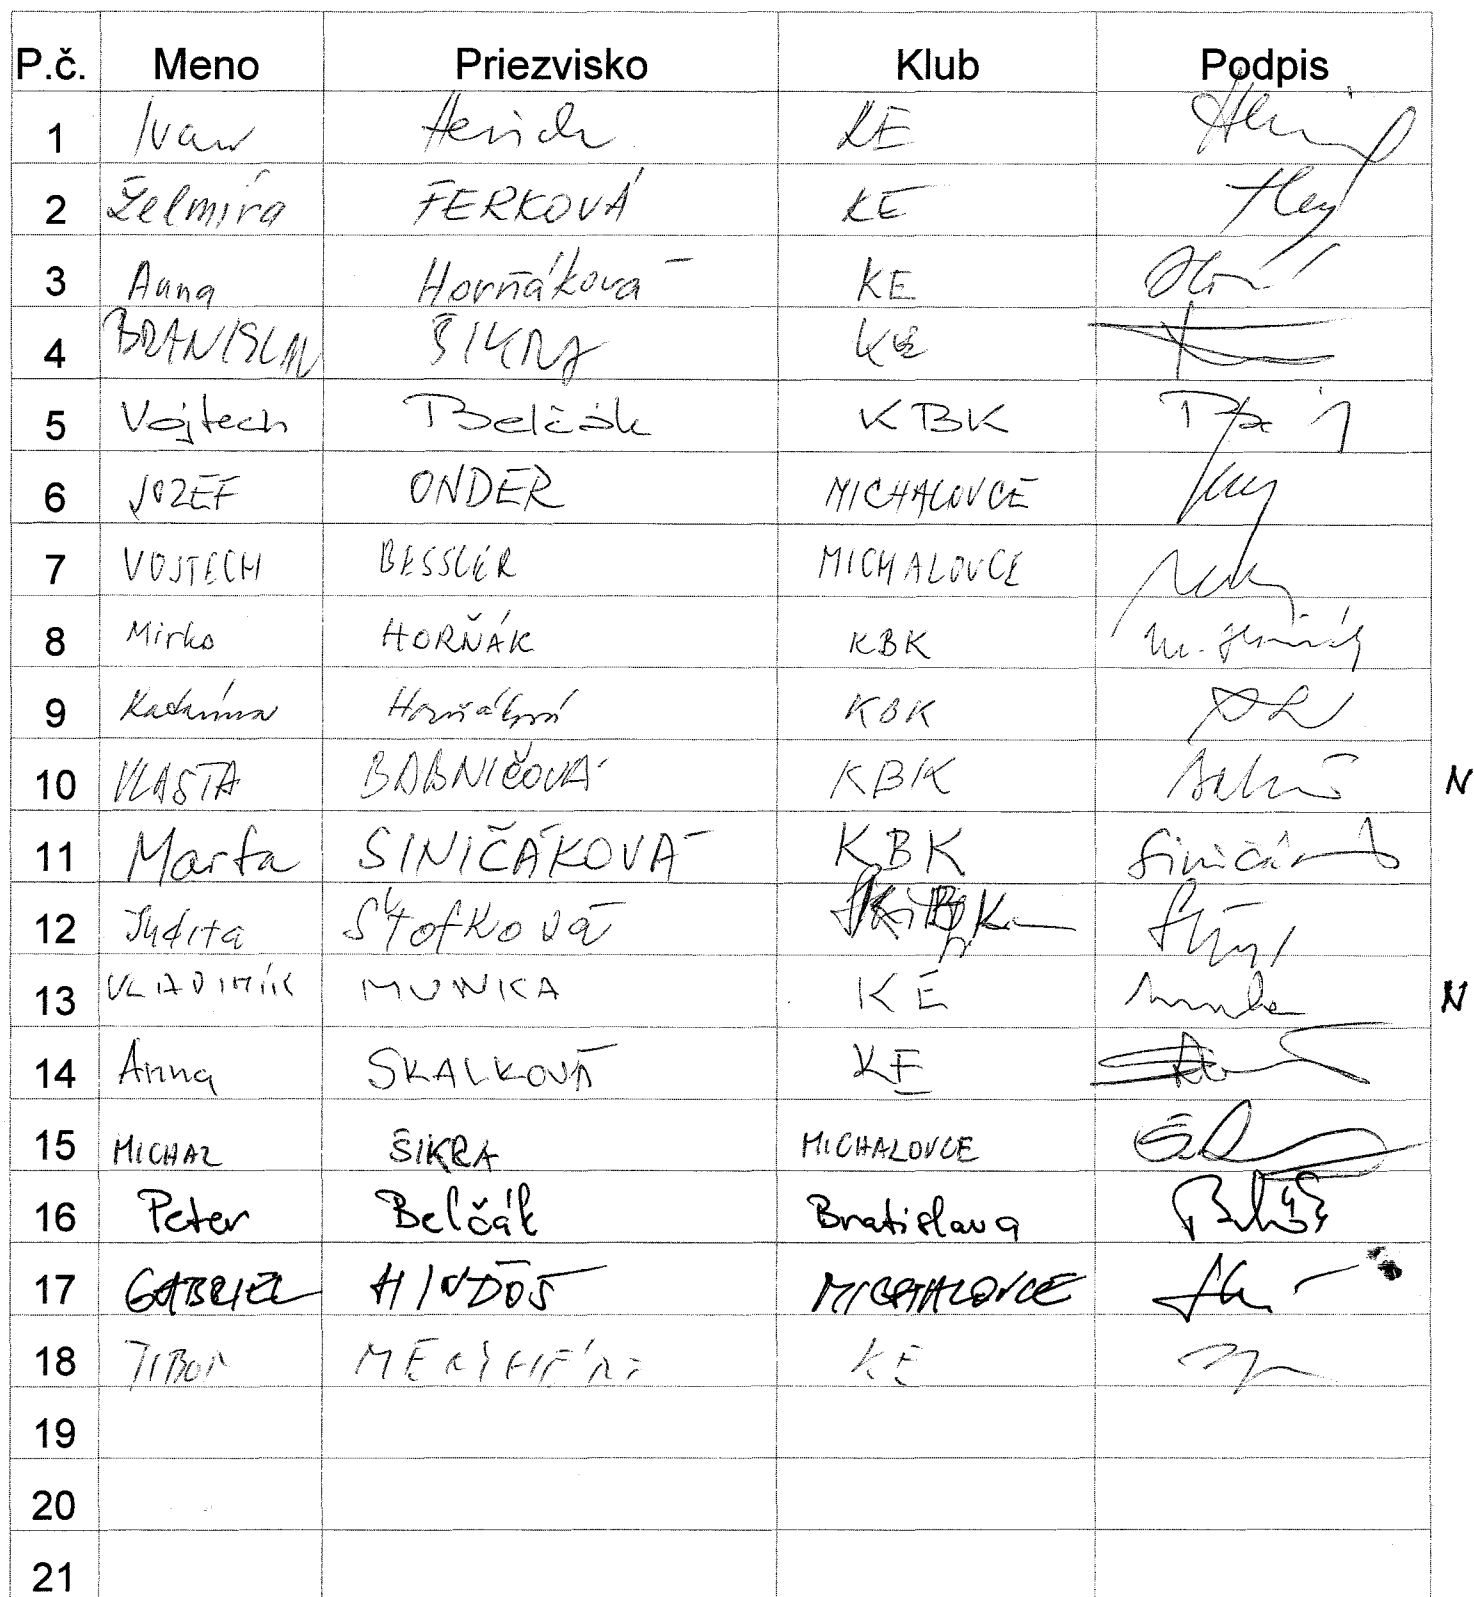 P.č. Meno Priezvisko Klub Podpis
1 Ivan Herich KE
2 Želmíra FERKOVÁ KE
3 Anna Horňáková KE
4 BRANISLAV ŠIKRA KE
5 Vojtech Belčák KBK
6 JOZEF ONDER MICHALOVCE
7 VOJTECH BESSLER MICHALOVCE
8 Mirko HORŇÁK KBK M. Horňák
9 Katarína Horňáková KBK
10 VLASTA BABNIČOVÁ KBK N
11 Marta SINIČÁKOVÁ KBK Siničáková
12 Judita Štofková KBK
13 VLADIMÍR MUNKA KE Munka N
14 Anna SKALKOVÁ KE
15 MICHAL ŠIKRA MICHALOVCE
16 Peter Belčák Bratislava
17 GABRIEL HINDOŠ MICHALOVCE
18 TIBOR KE
19
20
21